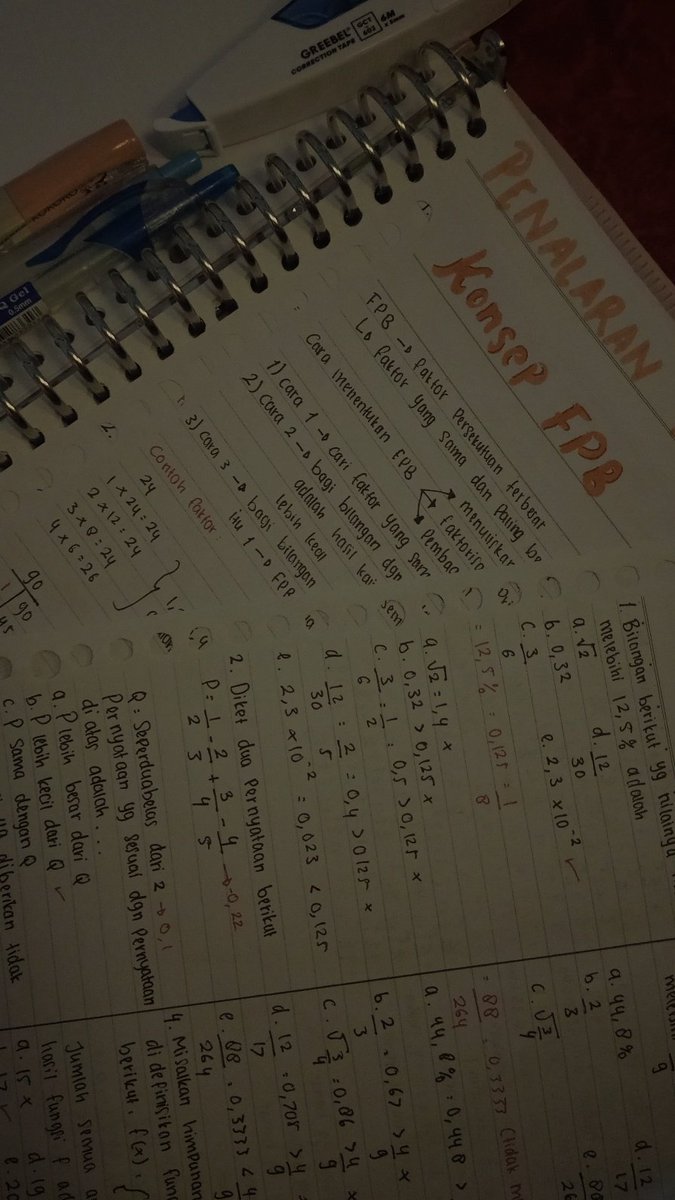 GREEBEL
CORRECTION TAPE
GCT
602
6M
x 5mm
KOKORO
Gel
0.5mm
PENALARAN
Konsep FPB
1.
FPB → Faktor Persekutuan terbesar
↳ Faktor yang sama dan Paling
Cara menentukan FPB
1) Cara 1 → cari faktor yang
2) Cara 2 → bagi bilangan dgn
adalah hasil
lebih kecil
3) Cara 3 → bagi bilangan
itu 1 → FPB
Contoh Faktor
2.
24
1 x 24 = 24
2 x 12 = 24
3 x 8 = 24
4 x 6 = 26
90
90
45
1. Bilangan berikut yg nilainya
melebihi 12,5% adalah
a. √2
b. 0,32
c. 3/6
d. 12/30
e. 2,3 x 10⁻² ✓
= 12,5% = 0,125 = 1/8
a. √2 = 1,4 x
b. 0,32 > 0,125 x
c. 3/6 = 1/2 = 0,5 > 0,125 x
d. 12/30 = 2/5 = 0,4 > 0125 x
e. 2,3 x 10⁻² = 0,023 < 0,125
2. Diket dua Pernyataan berikut
P = 1/2 - 2/3 + 3/4 - 4/5 → -0,22
Q = Seperduabelas dari 2 → 0,1
Pernyataan yg sesuai dgn Pernyataan
di atas adalah...
a. P lebih besar dari Q
b. P lebih kecil dari Q ✓
c. P sama dengan Q
diberikan tidak
9
a. 44,8%
b. 2/3
c. √3/4
d. 12/17
= 88/264 = 0,3333
a. 44,8% = 0,448 >
b. 2/3 = 0,67 > 4/9 x
c. √3/4 = 0,86 > 4/9 x
d. 12/17 = 0,705 > 4/9
e. 88/264 = 0,3333 < 4/9
4. Misalkan himpunan
di definisikan
berikut. f(x) = {
Jumlah semua
hasil fungsi f
a. 15 x